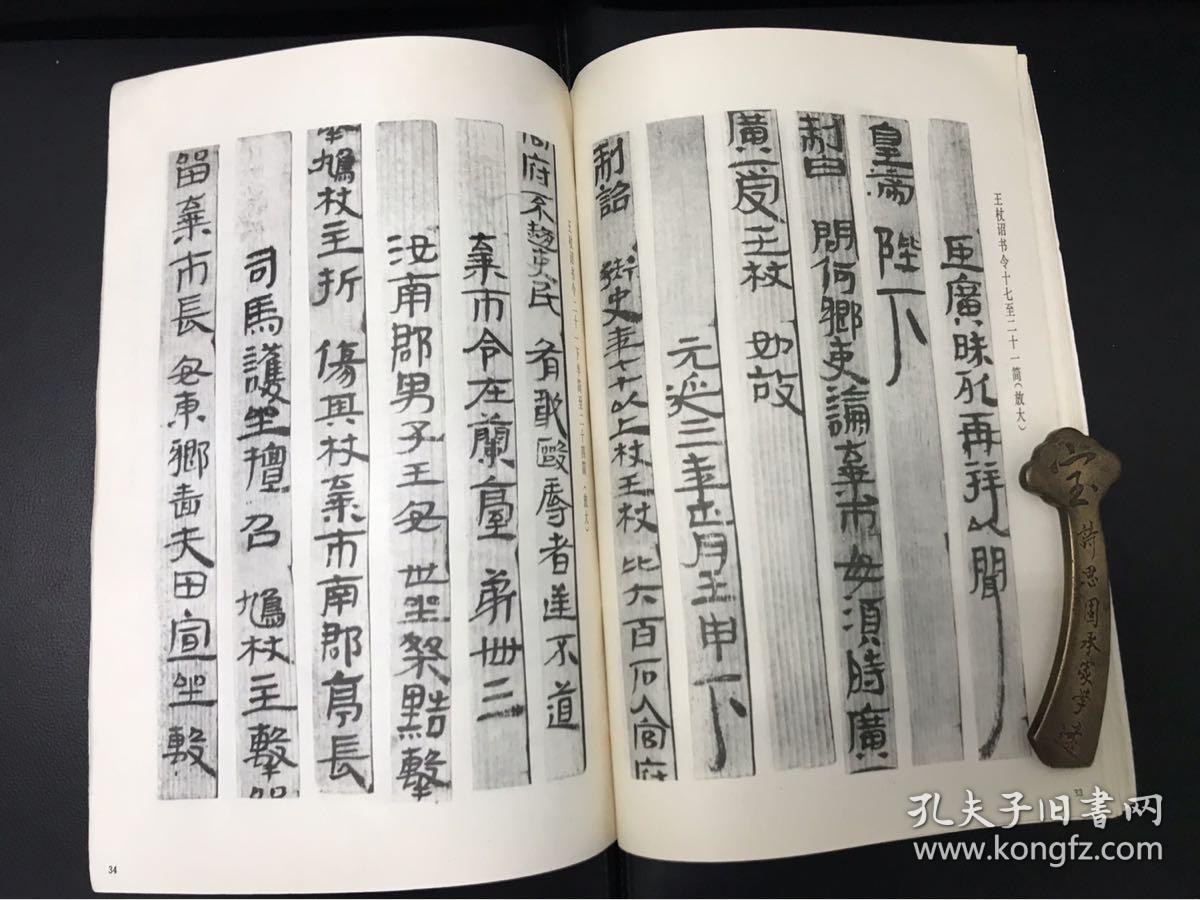 王杖诏书令十七至二十一简(放大)
臣廣昧死再拜以聞
皇帝陛下
制曰問何鄉吏論棄市毋須時廣
廣受王杖如故
元延三年正月壬申下
制詔御史年七十以上杖王杖比六百石入官府
33
王杖诏书令二十一下半简至二十四简(放大)
官府不趨吏民有敢毆辱者逆不道
棄市令在蘭臺第卌三
汝南郡男子王安世坐桀黠擊
擊鳩杖主折傷其杖棄市南郡亭長
司馬護坐擅召鳩杖主擊留
留棄市長安東鄉嗇夫田宣坐毄
34
宝
孔夫子旧书网
www.kongfz.com